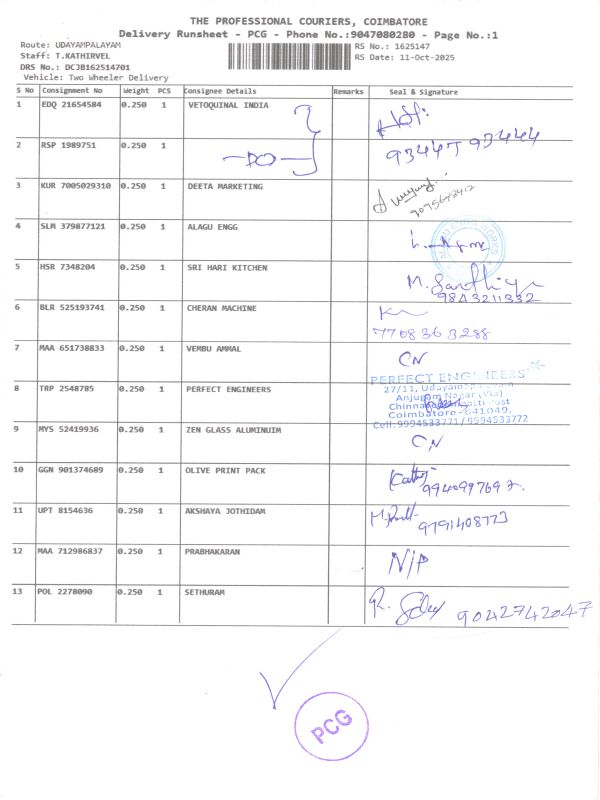 THE PROFESSIONAL COURIERS, COIMBATORE
Delivery Runsheet - PCG - Phone No.:9047080280 - Page No.:1
Route: UDAYAMPALAYAM
Staff: T.KATHIRVEL
DRS No.: DCJB162514701
Vehicle: Two Wheeler Delivery
RS No.: 1625147
RS Date: 11-Oct-2025
S No Consignment No Weight PCS Consignee Details Remarks Seal & Signature
1 EDQ 21654584 0.250 1 VETOQUINAL INDIA
2 RSP 1989751 0.250 1 DO 93445 93444
3 KUR 7005029310 0.250 1 DEETA MARKETING
4 SLM 379877121 0.250 1 ALAGU ENGG
5 HSR 7348204 0.250 1 SRI HARI KITCHEN M. 9843211332
6 BLR 525193741 0.250 1 CHERAN MACHINE 7708363288
7 MAA 651738833 0.250 1 VEMBU AMMAL CN
PERFECT ENGINEERS
8 TRP 2548785 0.250 1 PERFECT ENGINEERS 27/11, Udayampalayam
Anjugam Nagar (Via)
Post
Coimbatore - 641049.
Cell: 9994533771/9994533772
9 MYS 52419936 0.250 1 ZEN GLASS ALUMINUIM CN
10 GGN 901374689 0.250 1 OLIVE PRINT PACK 9940997692
11 UPT 8154636 0.250 1 AKSHAYA JOTHIDAM 9791408773
12 MAA 712986837 0.250 1 PRABHAKARAN N/P
13 POL 2278090 0.250 1 SETHURAM R. 9042742047
PCG